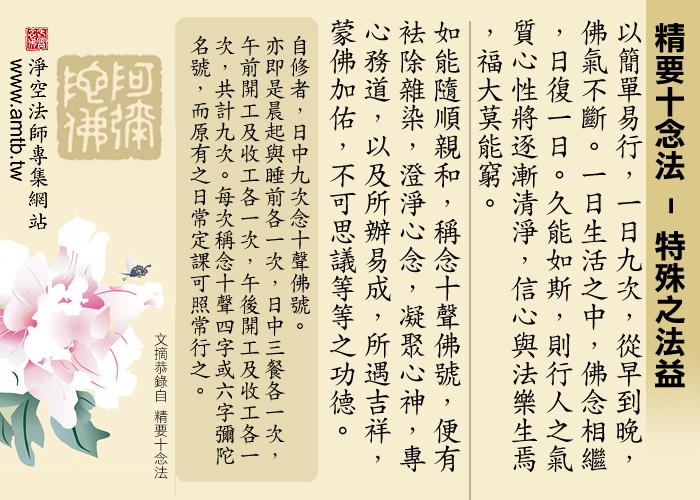 精要十念法 － 特殊之法益
以簡單易行，一日九次，從早到晚，
佛氣不斷。一日生活之中，佛念相繼
，日復一日。久能如斯，則行人之氣
質心性將逐漸清淨，信心與法樂生焉
，福大莫能窮。
如能隨順親和，稱念十聲佛號，便有
袪除雜染，澄淨心念，凝聚心神，專
心務道，以及所辦易成，所遇吉祥，
蒙佛加佑，不可思議等等之功德。
自修者，日中九次念十聲佛號。
亦即是晨起與睡前各一次，日中三餐各一次，
午前開工及收工各一次，午後開工及收工各一
次，共計九次。每次稱念十聲四字或六字彌陀
名號，而原有之日常定課可照常行之。
文摘恭錄自 精要十念法
阿彌
陀佛
淨空法師專集網站
www.amtb.tw